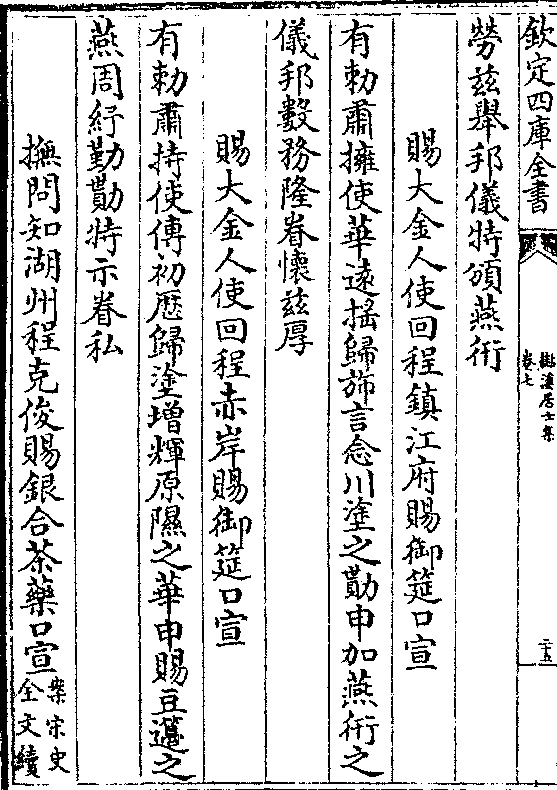 欽定四庫全書
檆溪居士集
卷七
二五
勞兹舉邦儀特頒燕衎
賜大金人使回程鎮江府賜御筵口宣
有勅肅擁使華遠揺歸斾言念川塗之勩申加燕衎之
儀邦數務隆眷懷兹厚
賜大金人使回程赤岸賜御筵口宣
有勅肅持使傳初歴歸塗增輝原隰之華申賜豆籩之
燕周紓勤勩特示眷私
撫問知湖州程克俊賜銀合茶藥口宣案宋史
全文續